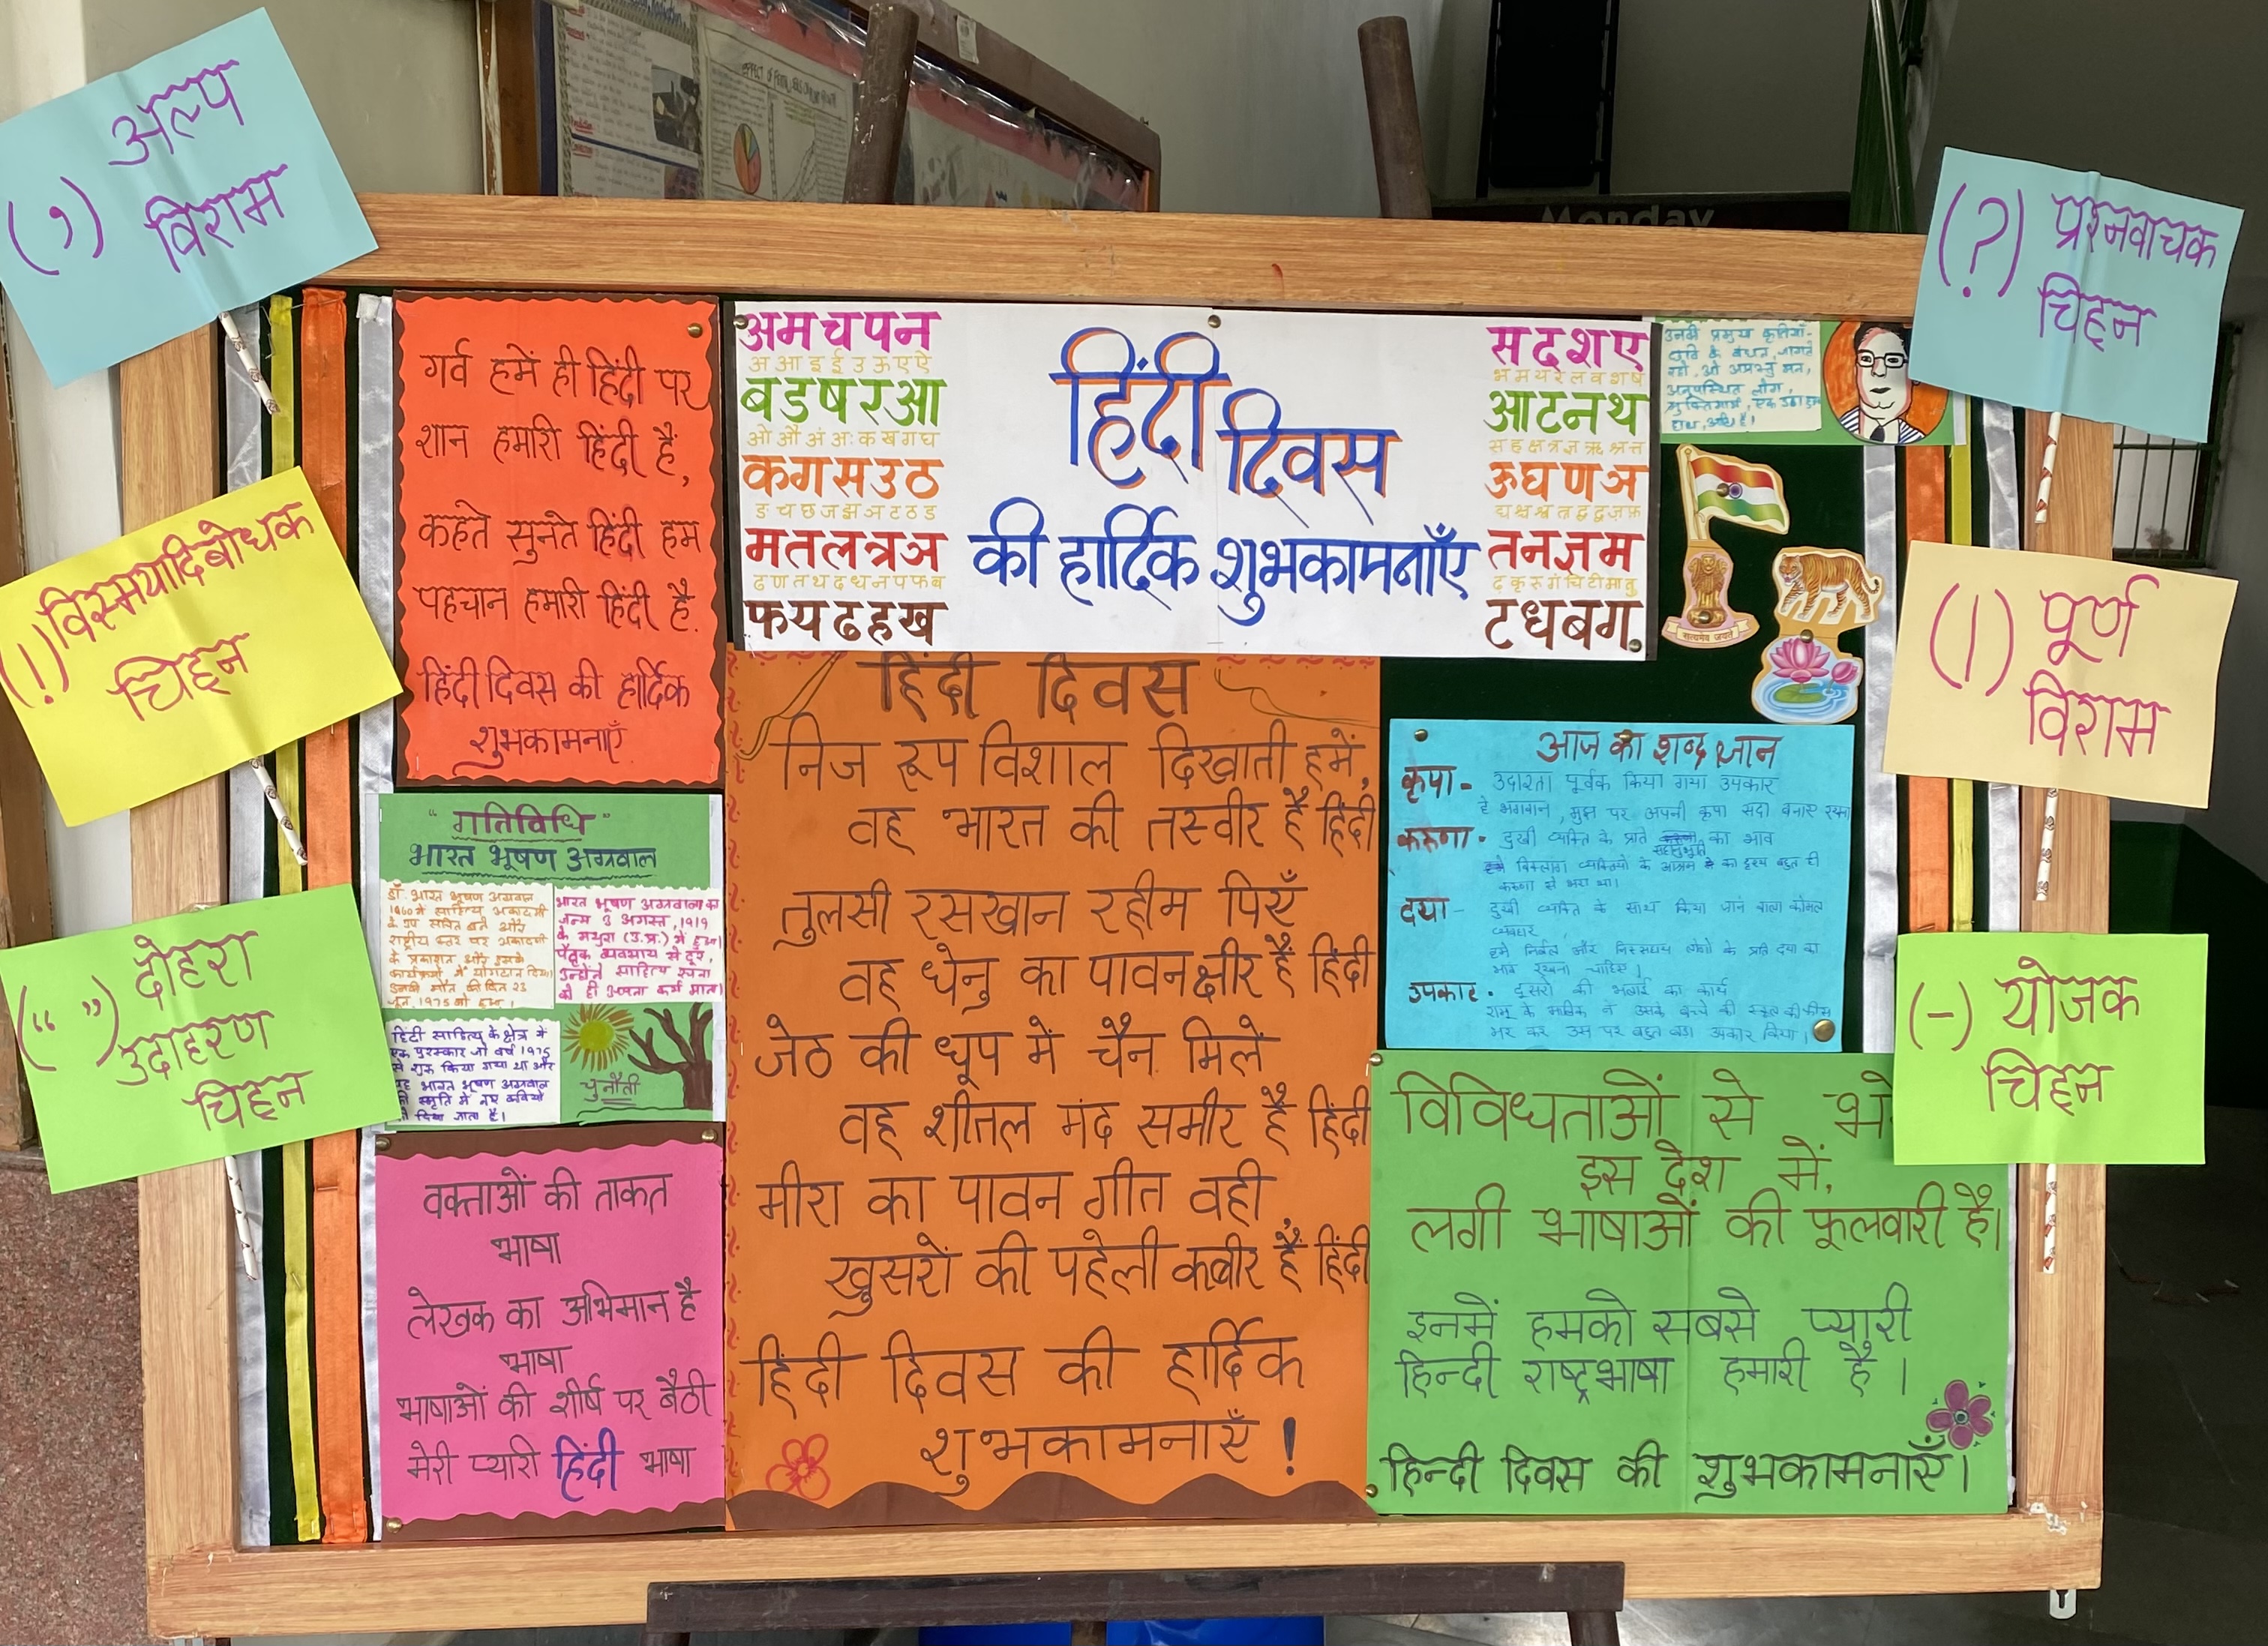 अल्प
(,) विराम
विस्मयादिबोधक
(!) चिह्न
दोहरा
(“ ”) उदाहरण
चिह्न
(?) प्रश्नवाचक
चिह्न
(।) पूर्ण
विराम
(-) योजक
चिह्न
Monday
गर्व हमें ही हिंदी पर
शान हमारी हिंदी है,
कहते सुनते हिंदी हम
पहचान हमारी हिंदी है.
हिंदी दिवस की हार्दिक
शुभकामनाएँ
अमचपन
अ आ इ ई उ ऊ ए ऐ
बडषरआ
ओ औ अं अः क ख ग घ
कगसउठ
ङ च छ ज झ ञ ट ठ ड
मतलत्रञ
ढ ण त थ द ध न प फ ब
फयढहख
हिंदी
दिवस
की हार्दिक शुभकामनाएँ
सदशए
भ म य र ल व श ष
आटनथ
ऊघणञ
तनज्ञम
टधबग
उनकी प्रमुख कृतियाँ-
छवि के बंधन, जागते
रहो, ओ अप्रस्तुत मन,
अनुपस्थित लोग,
सत्यमेव जयते
"गतिविधि"
भारत भूषण अग्रवाल
डॉ. भारत भूषण अग्रवाल
1960 में साहित्य अकादमी
के उप सचिव बने और
राष्ट्रीय स्तर पर अकादमी
के प्रकाशन और इसके
कार्यक्रमों में योगदान दिया।
उनकी मौत की दिन 23
जून, 1975 को हुआ।
भारत भूषण अग्रवाल का
जन्म 3 अगस्त, 1919
के मथुरा (उ.प्र.) में हुआ।
पैतृक व्यवसाय से दूर,
उन्होंने साहित्य रचना
को ही अपना कर्म माना।
हिंदी साहित्य के क्षेत्र में
एक पुरस्कार जो वर्ष 1975
से शुरू किया गया था और
यह भारत भूषण अग्रवाल
की स्मृति में नए कवियों
को दिया जाता है।
चुनौती
वक्ताओं की ताकत
भाषा
लेखक का अभिमान है
भाषा
भाषाओं की शीर्ष पर बैठी
मेरी प्यारी हिंदी भाषा
हिंदी दिवस
निज रूप विशाल दिखाती हमें,
वह भारत की तस्वीर है हिंदी
तुलसी रसखान रहीम पिएँ
वह धेनु का पावन क्षीर है हिंदी
जेठ की धूप में चैन मिले
वह शीतल मंद समीर है हिंदी
मीरा का पावन गीत वही
खुसरो की पहेली कबीर है हिंदी
हिंदी दिवस की हार्दिक
शुभकामनाएँ !
आज का शब्द ज्ञान
कृपा- उदारता पूर्वक किया गया उपकार
हे भगवान, मुझ पर अपनी कृपा सदा बनाए रखना
करुणा- दुखी व्यक्ति के प्रति सहानुभूति का भाव
विकलांग व्यक्तियों के आश्रम का दृश्य बहुत ही
करुणा से भरा था।
दया- दुखी व्यक्ति के साथ किया जाने वाला कोमल
व्यवहार
हमें निर्बल और निस्सहाय लोगों के प्रति दया का
भाव रखना चाहिए।
उपकार- दूसरों की भलाई का कार्य
रामू के मालिक ने उसके बच्चे की स्कूल की फीस
भर कर उस पर बहुत बड़ा उपकार किया।
विविधताओं से
इस देश में,
लगी भाषाओं की फूलवारी है।
इनमें हमको सबसे प्यारी
हिन्दी राष्ट्रभाषा हमारी है।
हिन्दी दिवस की शुभकामनाएँ।